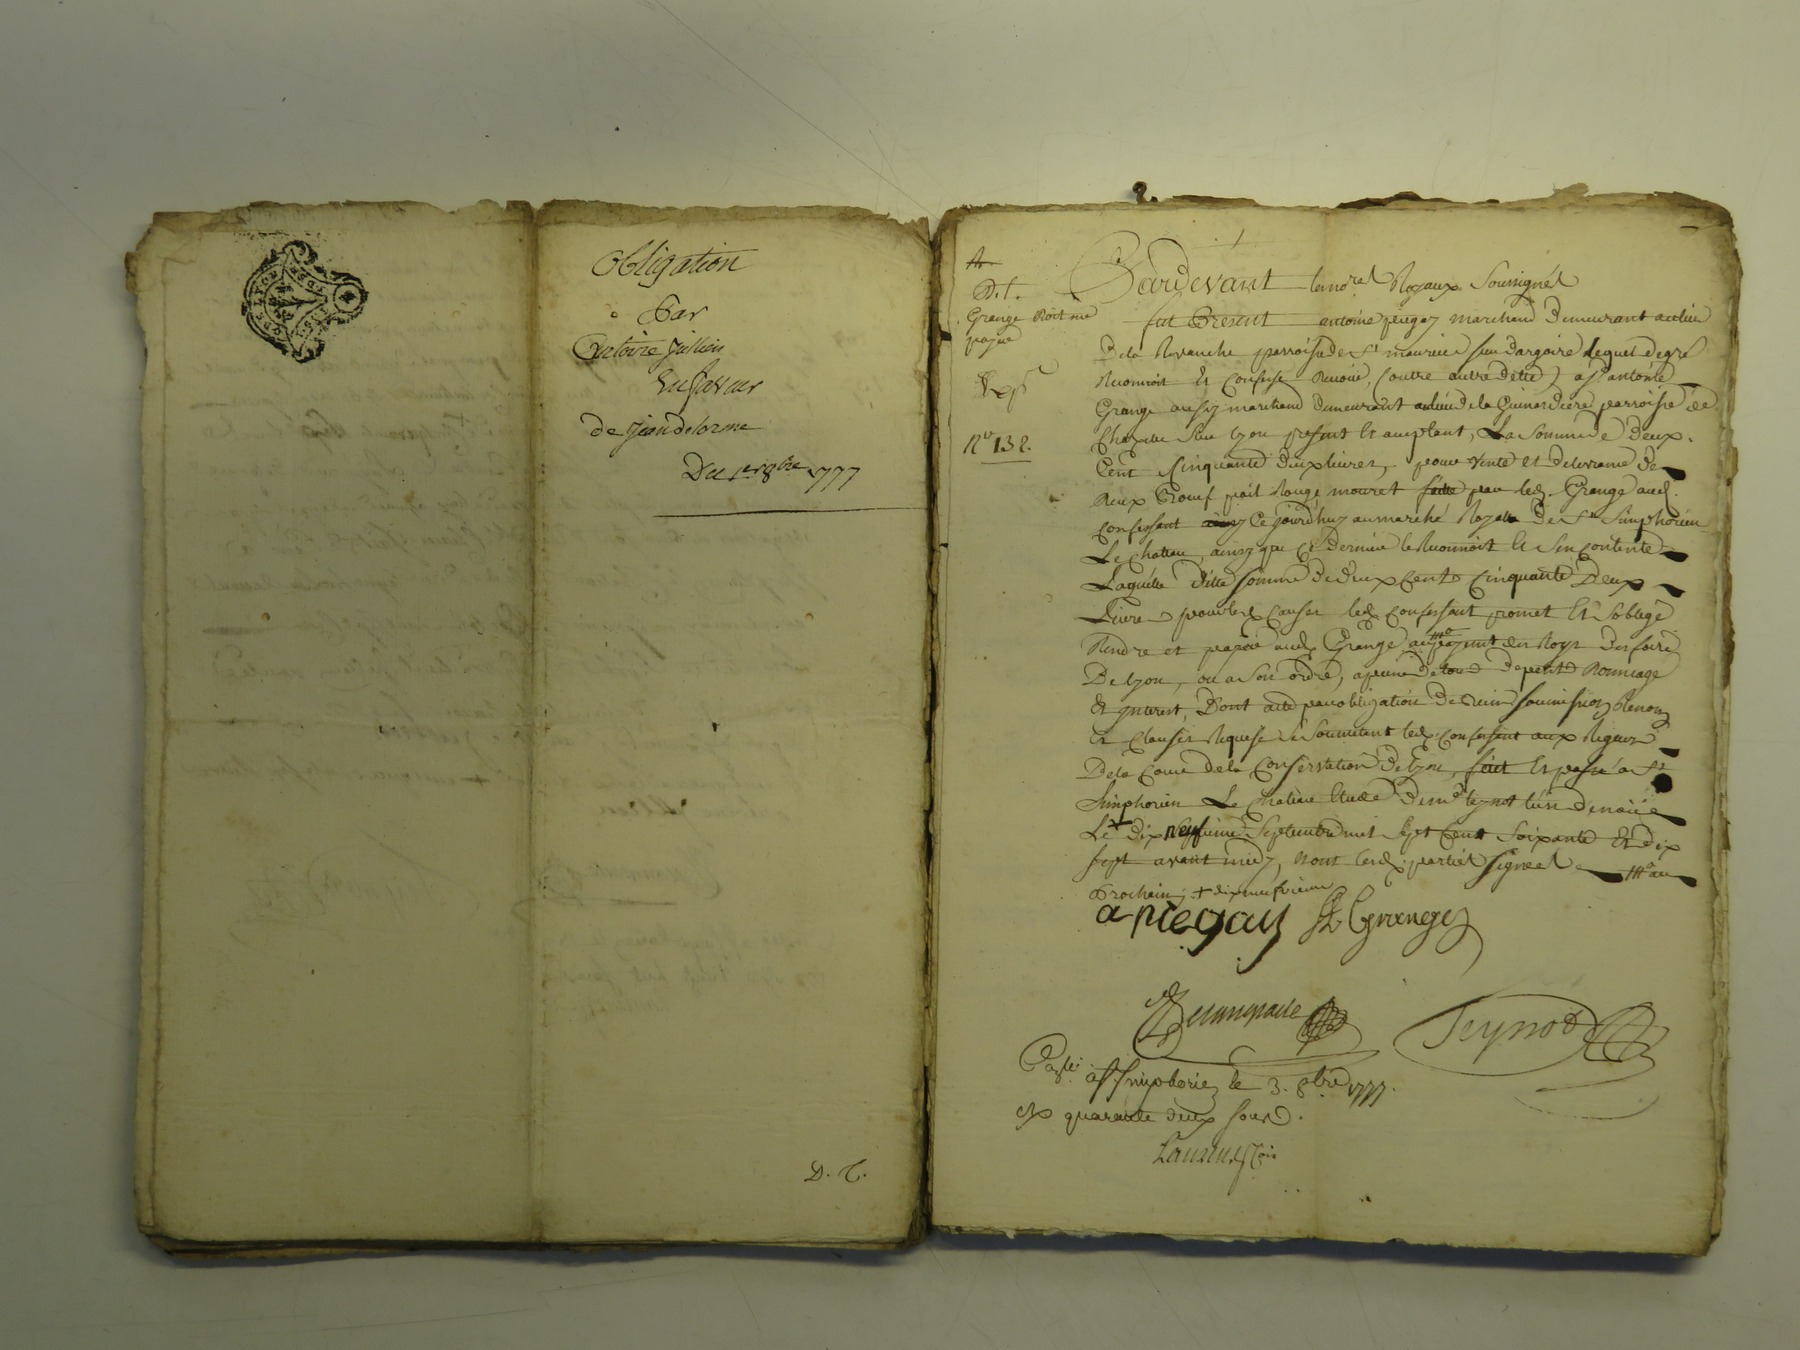 Obligation
Par
Antoine Jullien
En faveur
de Jean delorme
Du 1er 8bre 1777
D. C.
D. t.
Grange Doit me
payé
Exp.
No 132.
Pardevant les no.res Royaux Soussignés
fut Present antoine piegay marchand demeurant au lieu
De la Rovanche parroisse de St maurice sur dargoire lequel de gré
Reconnoit et confesse devoir, (outre autre dette) à Sr antoine
Grange aussy marchand demeurant au lieu de la Guinardiere parroisse de
Chapelle Sur lyon present et acceptant, La somme de deux
Cent Cinquante deux livres, pour vente et delivrance de
deux Boeuf poil Rouge mouret faitte par led. Grange aud.
confessant cejourd'huy au marché Royal de St Simphorien
Le chateau, ainsy que ce dernier le Reconnoit et s'en contente
Laquelle ditte somme de deux Cent Cinquante Deux
Livres pour les causes led. confessant promet et s'oblige
Rendre et payer aud. Grange au payement des Roys des foires
De lyon, ou a son ordre, a peine de tous depens Dommage
et Interest, Dont acte par obligation de biens soumission Renon.
et Clauses Requise se soumettant led. confessant aux Rigueurs
De la Cour de la Conservation de lyon, fait et passé a St
Simphorien Le chateau Etude de me teynod l'un de nous
Le + dix neufvieme Septembre mil Sept Cent Soixante et dix
sept avant midy, nont lesd. parties signées
Prochain; + dix neufvieme
a piegay A Grange
Teynod
à St Simphorien le 3. 8bre 1777.
quarante deux sous.